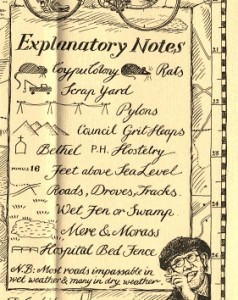 Explanatory Notes
Coypu Colony Rats
Scrap Yard
Pylons
Council Grit Heaps
Bethel P.H. Hostelry
16 Feet above Sea Level
Roads, Droves, Tracks.
Wet Fen or Swamp.
Mere & Morass
Hospital Bed Fence
N.B: Most roads impassable in
wet weather & many in dry weather.
21
22
23
24